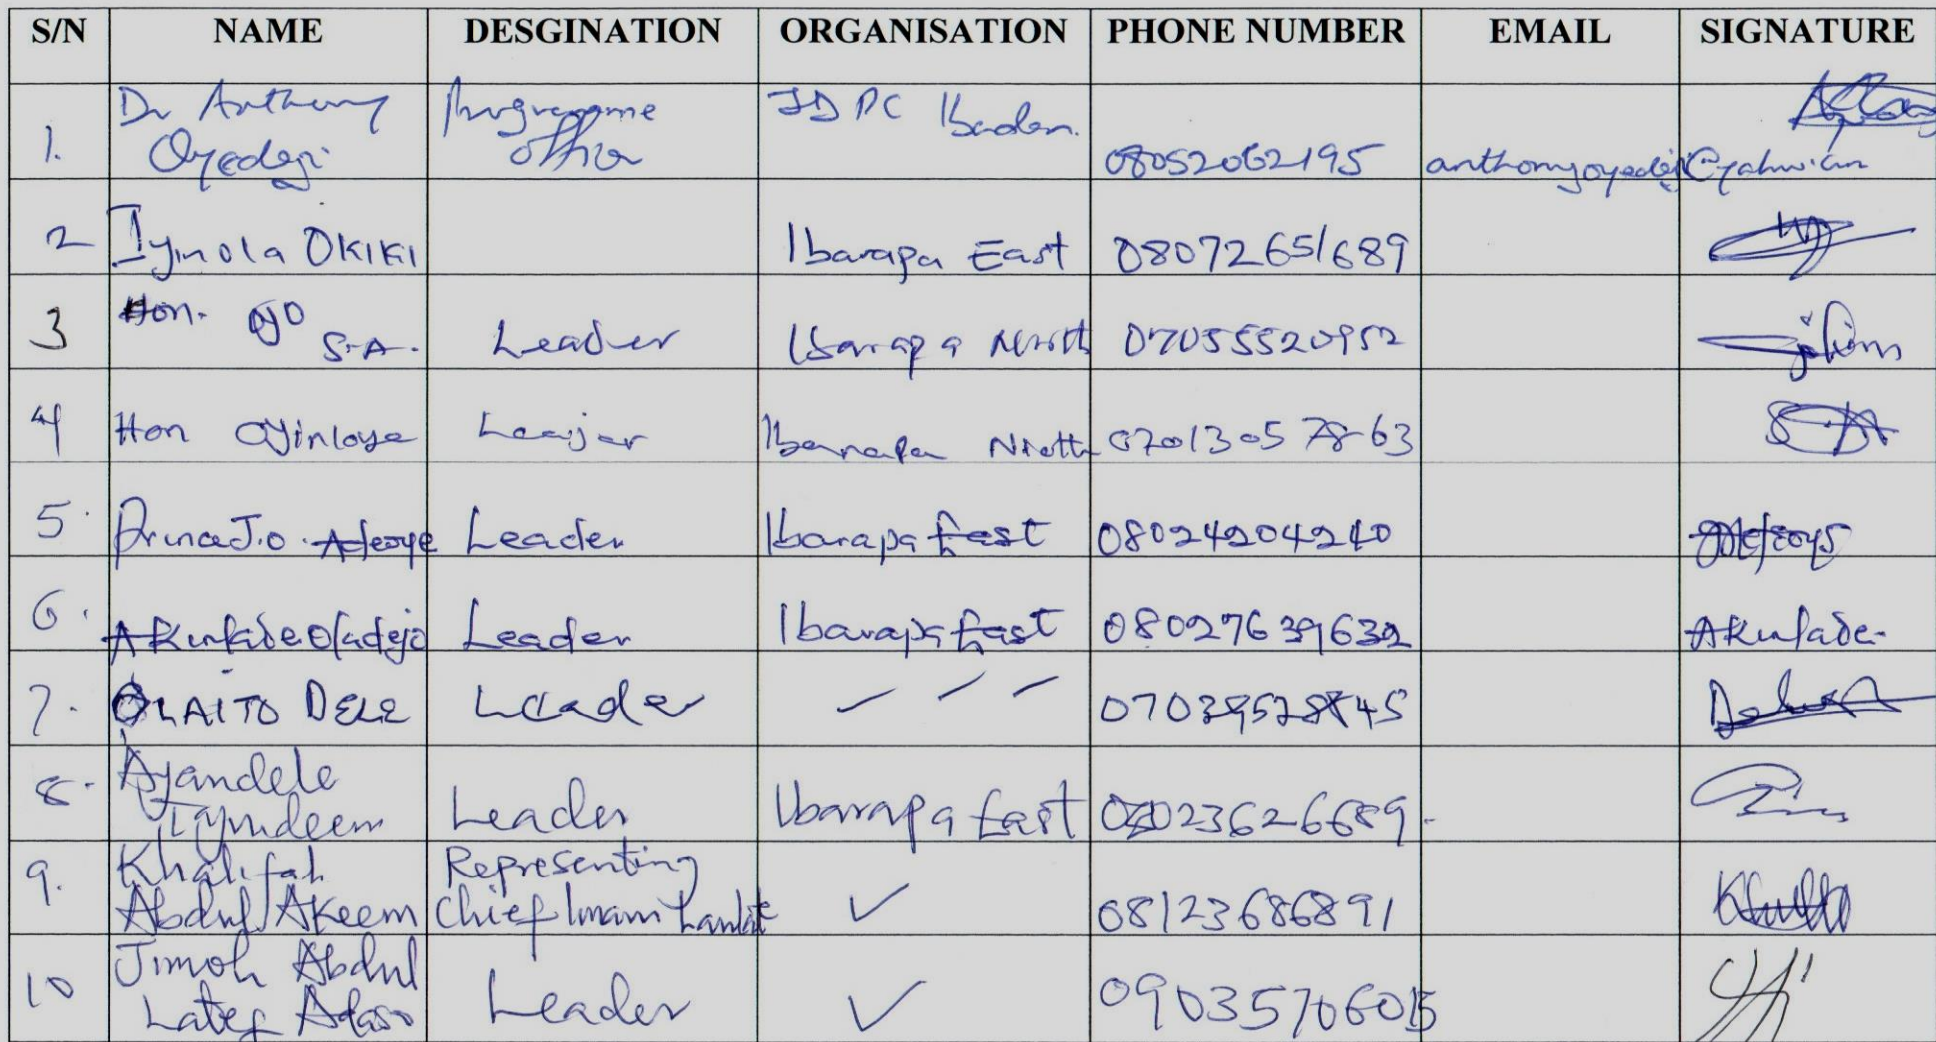 S/N NAME DESGINATION ORGANISATION PHONE NUMBER EMAIL SIGNATURE
1. Dr Anthony Oyedeji Programme Officer JDPC Ibadan. 08052062195
2 Iyinola OKIKI Ibarapa East 08072651689
3 Hon. Ojo S.A. Leader Ibarapa North 07055520952
4 Hon Oyinloye Ibarapa 07013057863
5. Prince J.O. Adeoye Leader Ibarapa East 08024204240
6. Akinfade Oladejo Leader Ibarapa East 08027639632 Akinfade.
7. OLAITO DELE Leader 07039528845
8. Ayandele Leader Ibarapa East 08023626689.
9. Khalifah Abdul Akeem Representing Chief Imam ✓ 08123686891
10 Jimoh Abdul Lateef Leader ✓